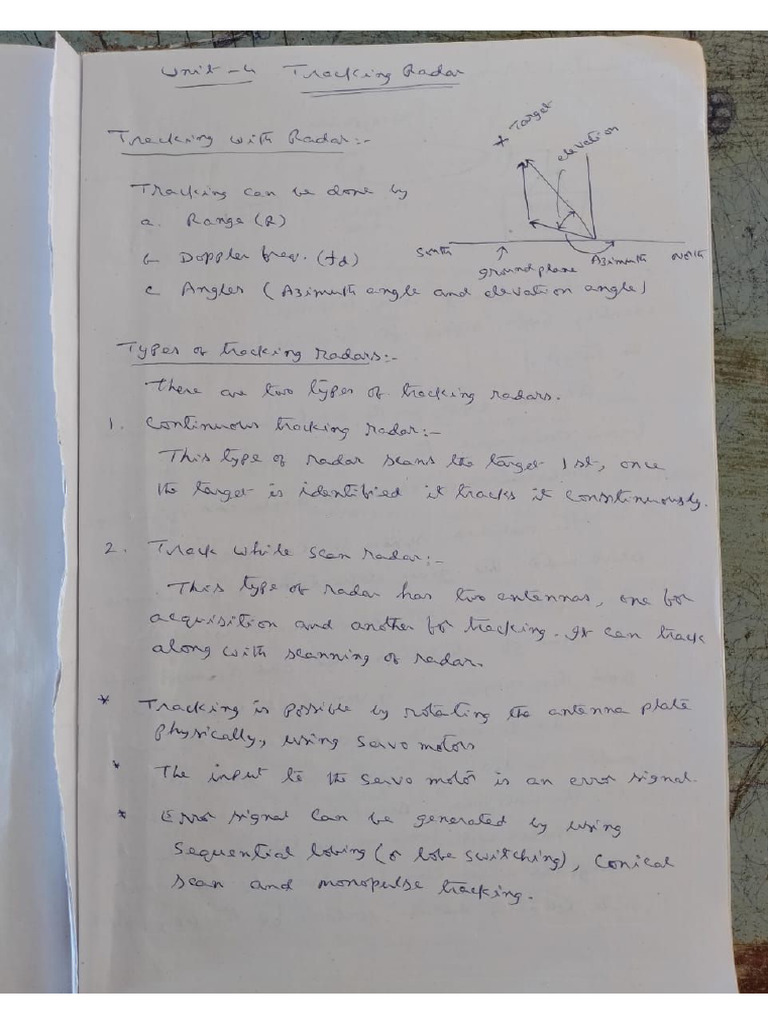 Unit - 4 Tracking Radar
Tracking with Radar:-
Target
elevation
Tracking can be done by
a. Range (R)
b. Doppler freq. (fd)
South
ground plane
Azimuth
North
c Angles (Azimuth angle and elevation angle)
Types of tracking radars:-
There are two types of tracking radars.
1. Continuous tracking radar:-
This type of radar scans the target 1st, once
the target is identified it tracks it constinuously.
2. Track while scan radar:-
This type of radar has two antennas, one for
acquisition and another for tracking. It can track
along with scanning of radar.
* Tracking is possible by rotating the antenna plate
physically, using servo motors
* The input to the servo motor is an error signal.
* Error signal can be generated by using
Sequential lobing (or lobe switching), Conical
scan and monopulse tracking.